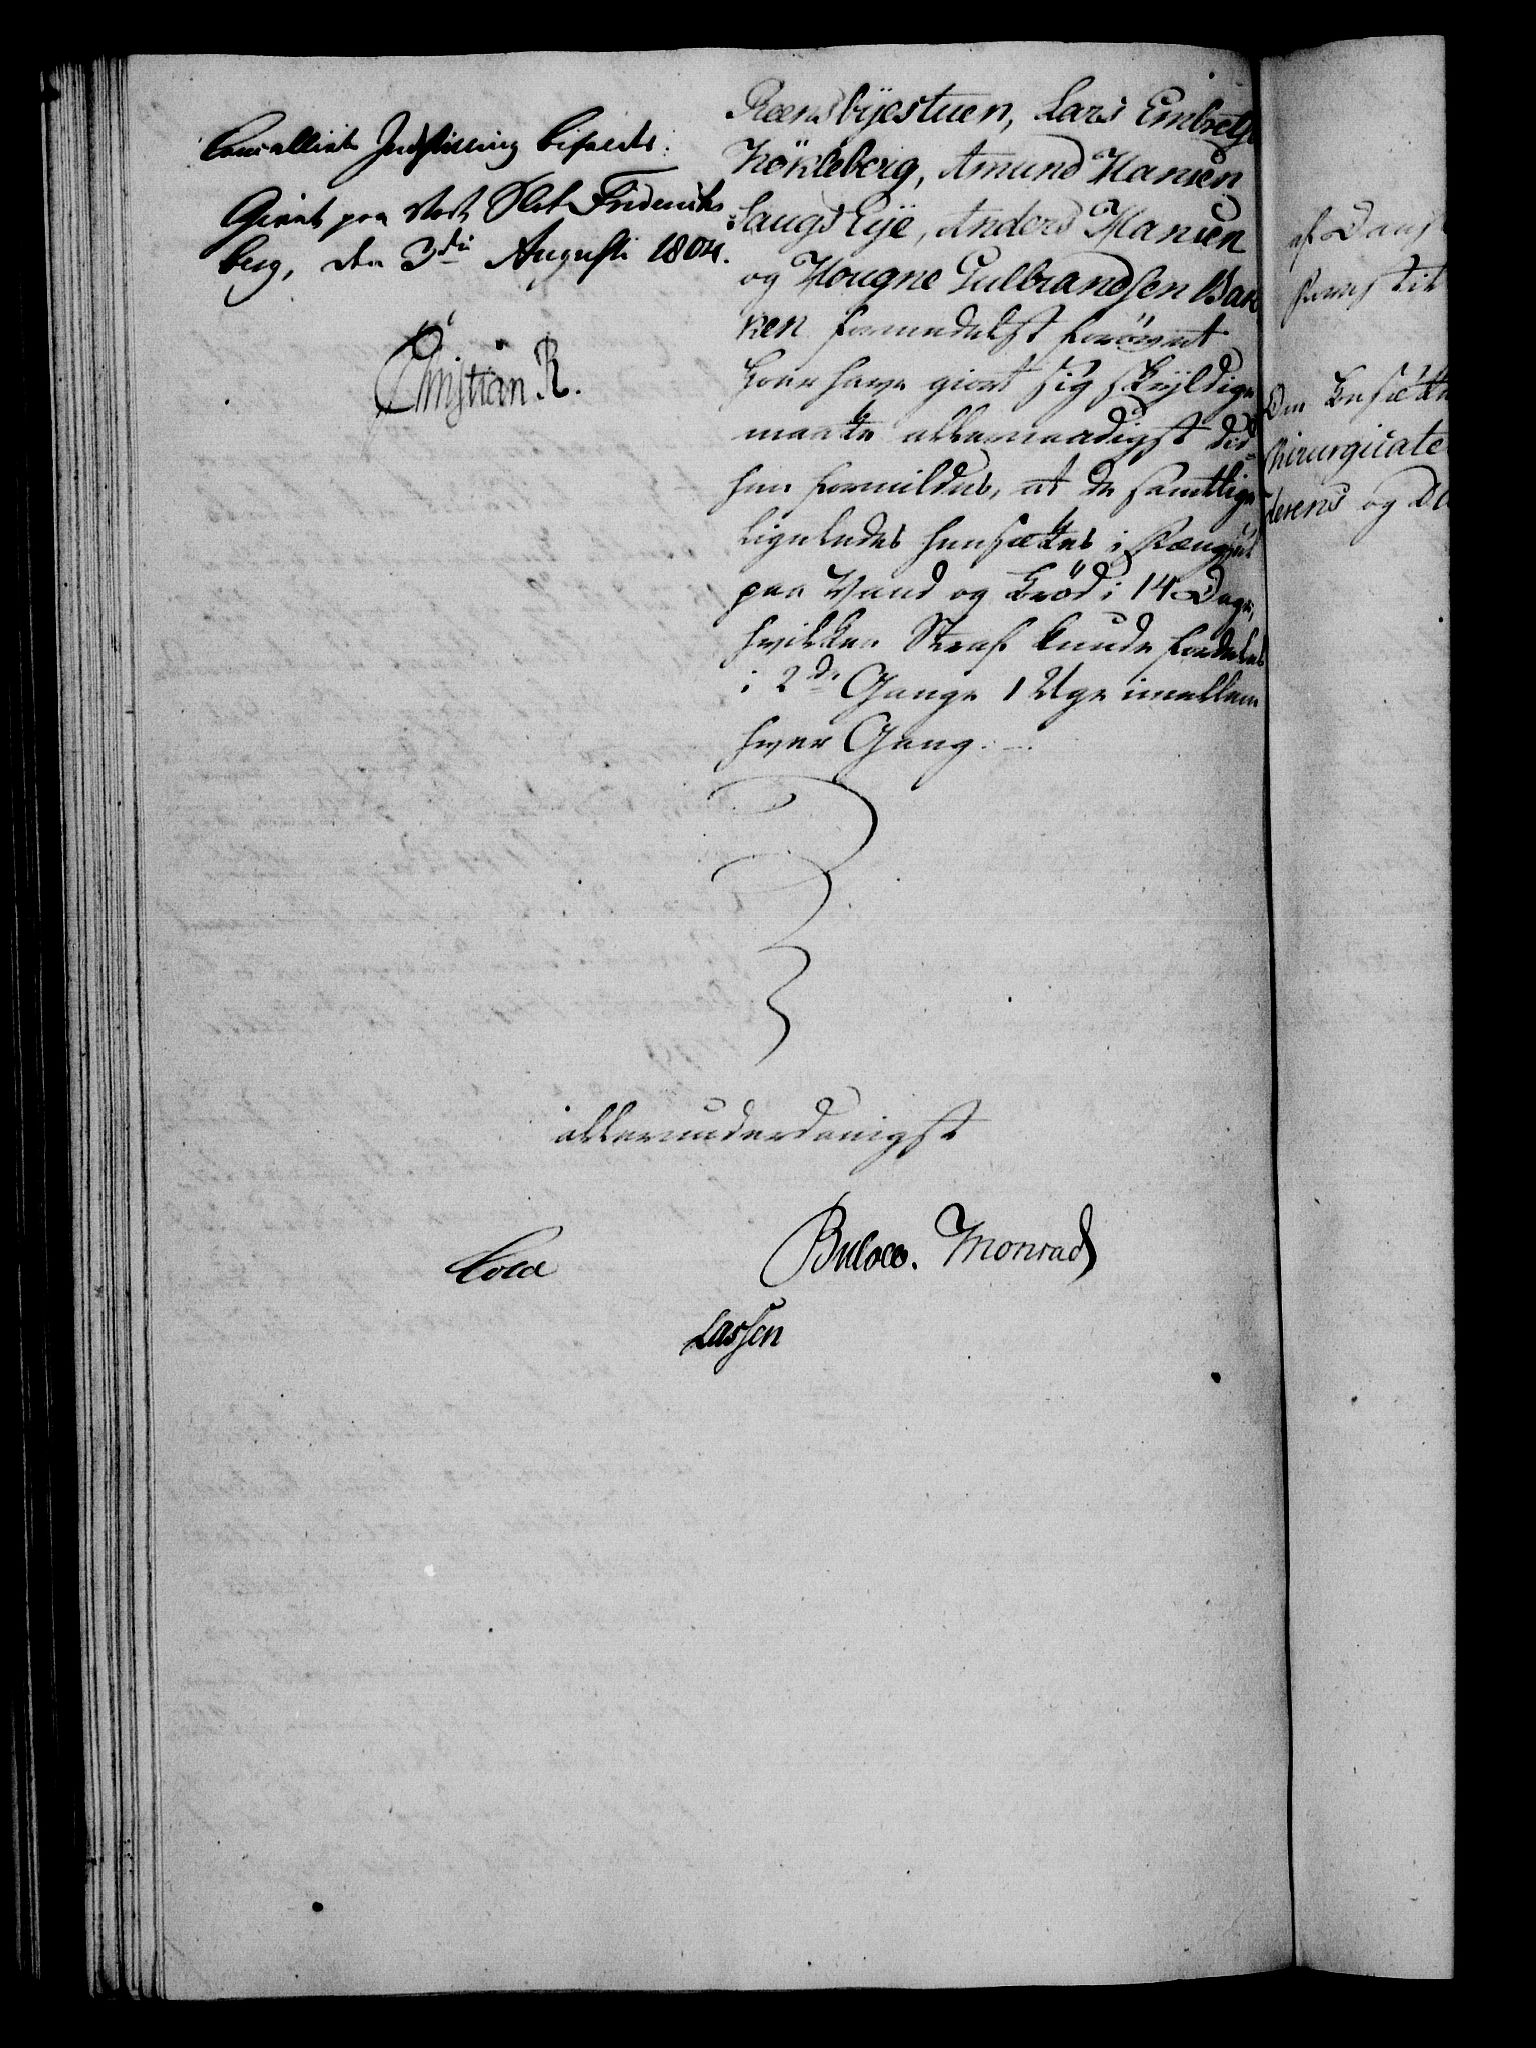 Cancelliets Indstilling bifaldes.
Givet paa Vort Slot Friderichs
berg, den 3die Augusti 1804.
Christian R.
Rensbyestuen, Lars Embretse
Kökleberg, Amund Hansen
Saugs Eye, Anders Hansen
og Hougne Gulbrandsen Bak
ken formedelst forövent
have giort sig skyldige
maatte allernaadigst der
hen formildes, at de samtlige
ligeledes hensættes i Fængsel
paa Vand og Bröd i 14 Dage,
hvilken Straf kunde fordeles
i 2de Gange 1 Uge imellem
hver Gang.
allerunderdanigst
Cold Bülow. Monrad
Lassen
af Dansk
den Ansætte
Chirurgicate
derens og